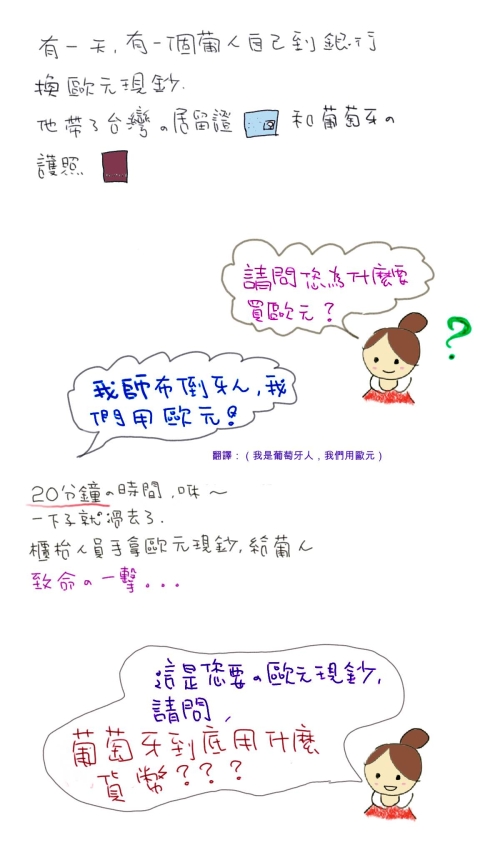 有一天,有一個葡人自己到銀行
換歐元現鈔.
他帶了台灣的居留證 和葡萄牙的
護照
請問您為什麼要
買歐元?
?
我師布倒牙人,我
們用歐元!
翻譯:(我是葡萄牙人,我們用歐元)
20分鐘的時間,咻~
一下子就過去了.
櫃枱人員手拿歐元現鈔,給葡人
致命的一擊...
這是您要的歐元現鈔,
請問,
葡萄牙到底用什麼
貨幣???